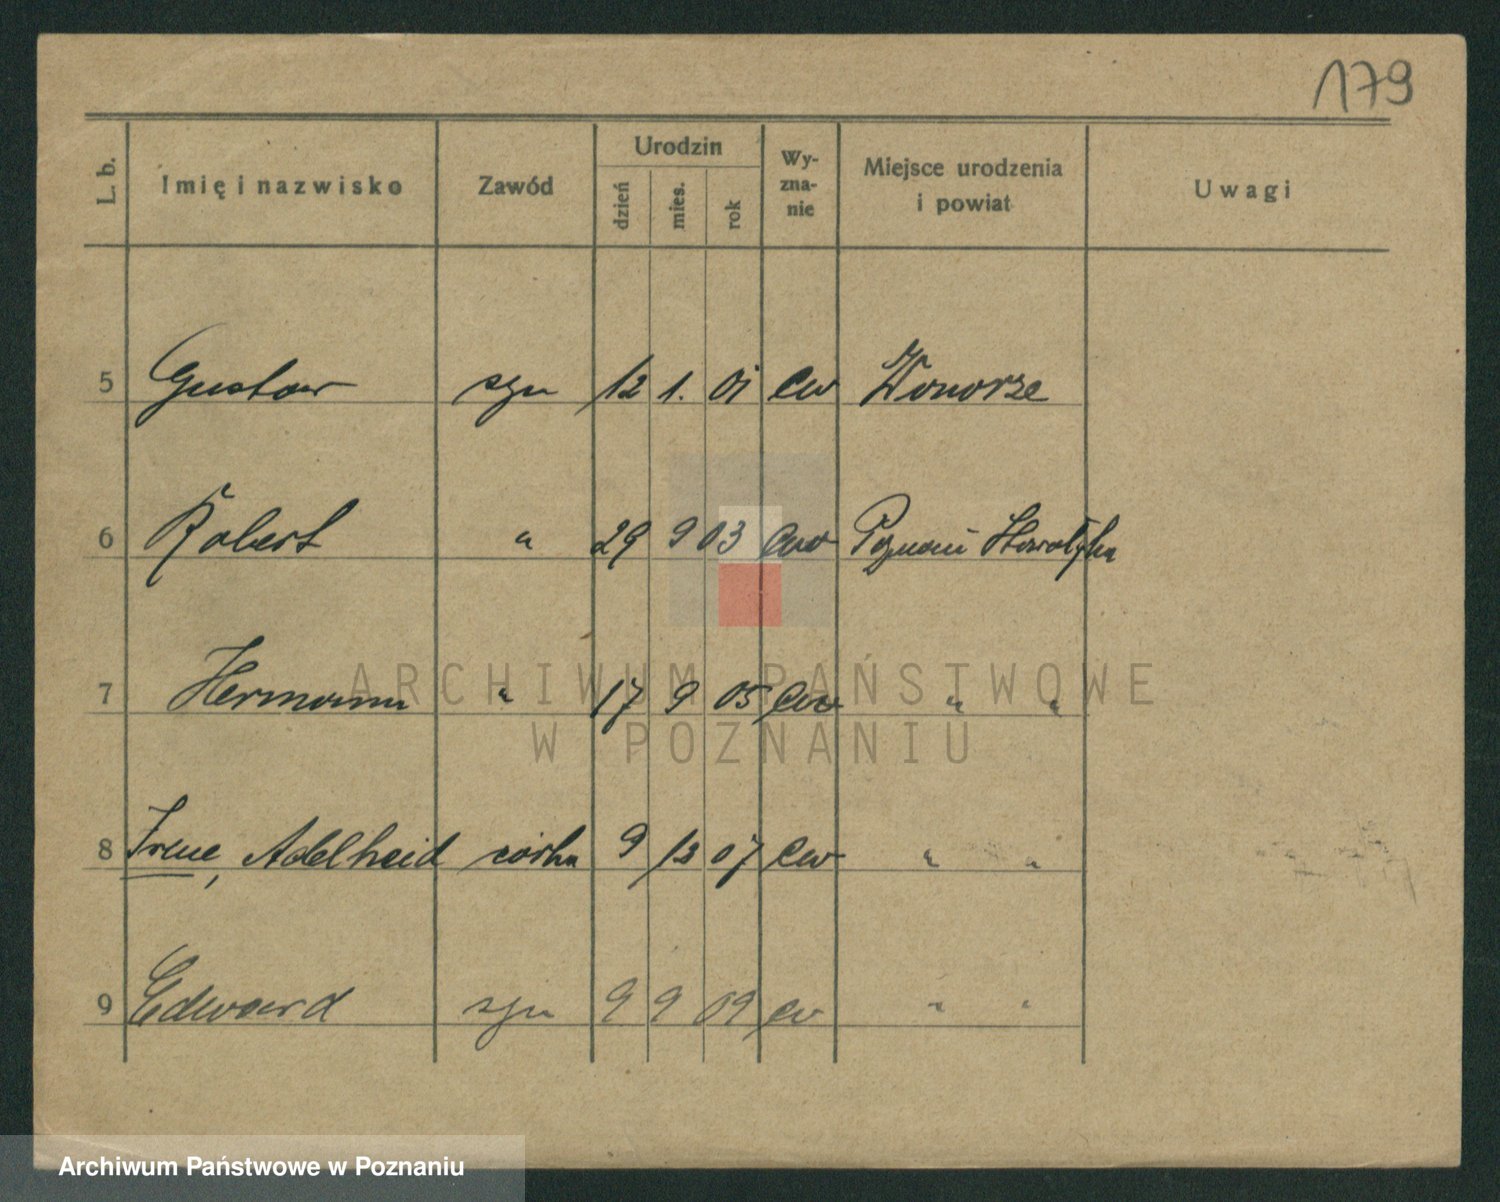 179
L. b. Imię i nazwisko Zawód Urodzin dzień mies. rok Wy-zna-nie Miejsce urodzenia i powiat Uwagi
5 Gustaw syn 12 1. 01 ew Wonorze
6 Robert " 29 9 03 ew Poznań
7 Hermann " 17 9 05 ew " "
8 Irene, Adelheid córka 9 12 07 ew " "
9 Edward syn 9 9 09 ew " "
ARCHIWUM PAŃSTWOWE
W POZNANIU
Archiwum Państwowe w Poznaniu